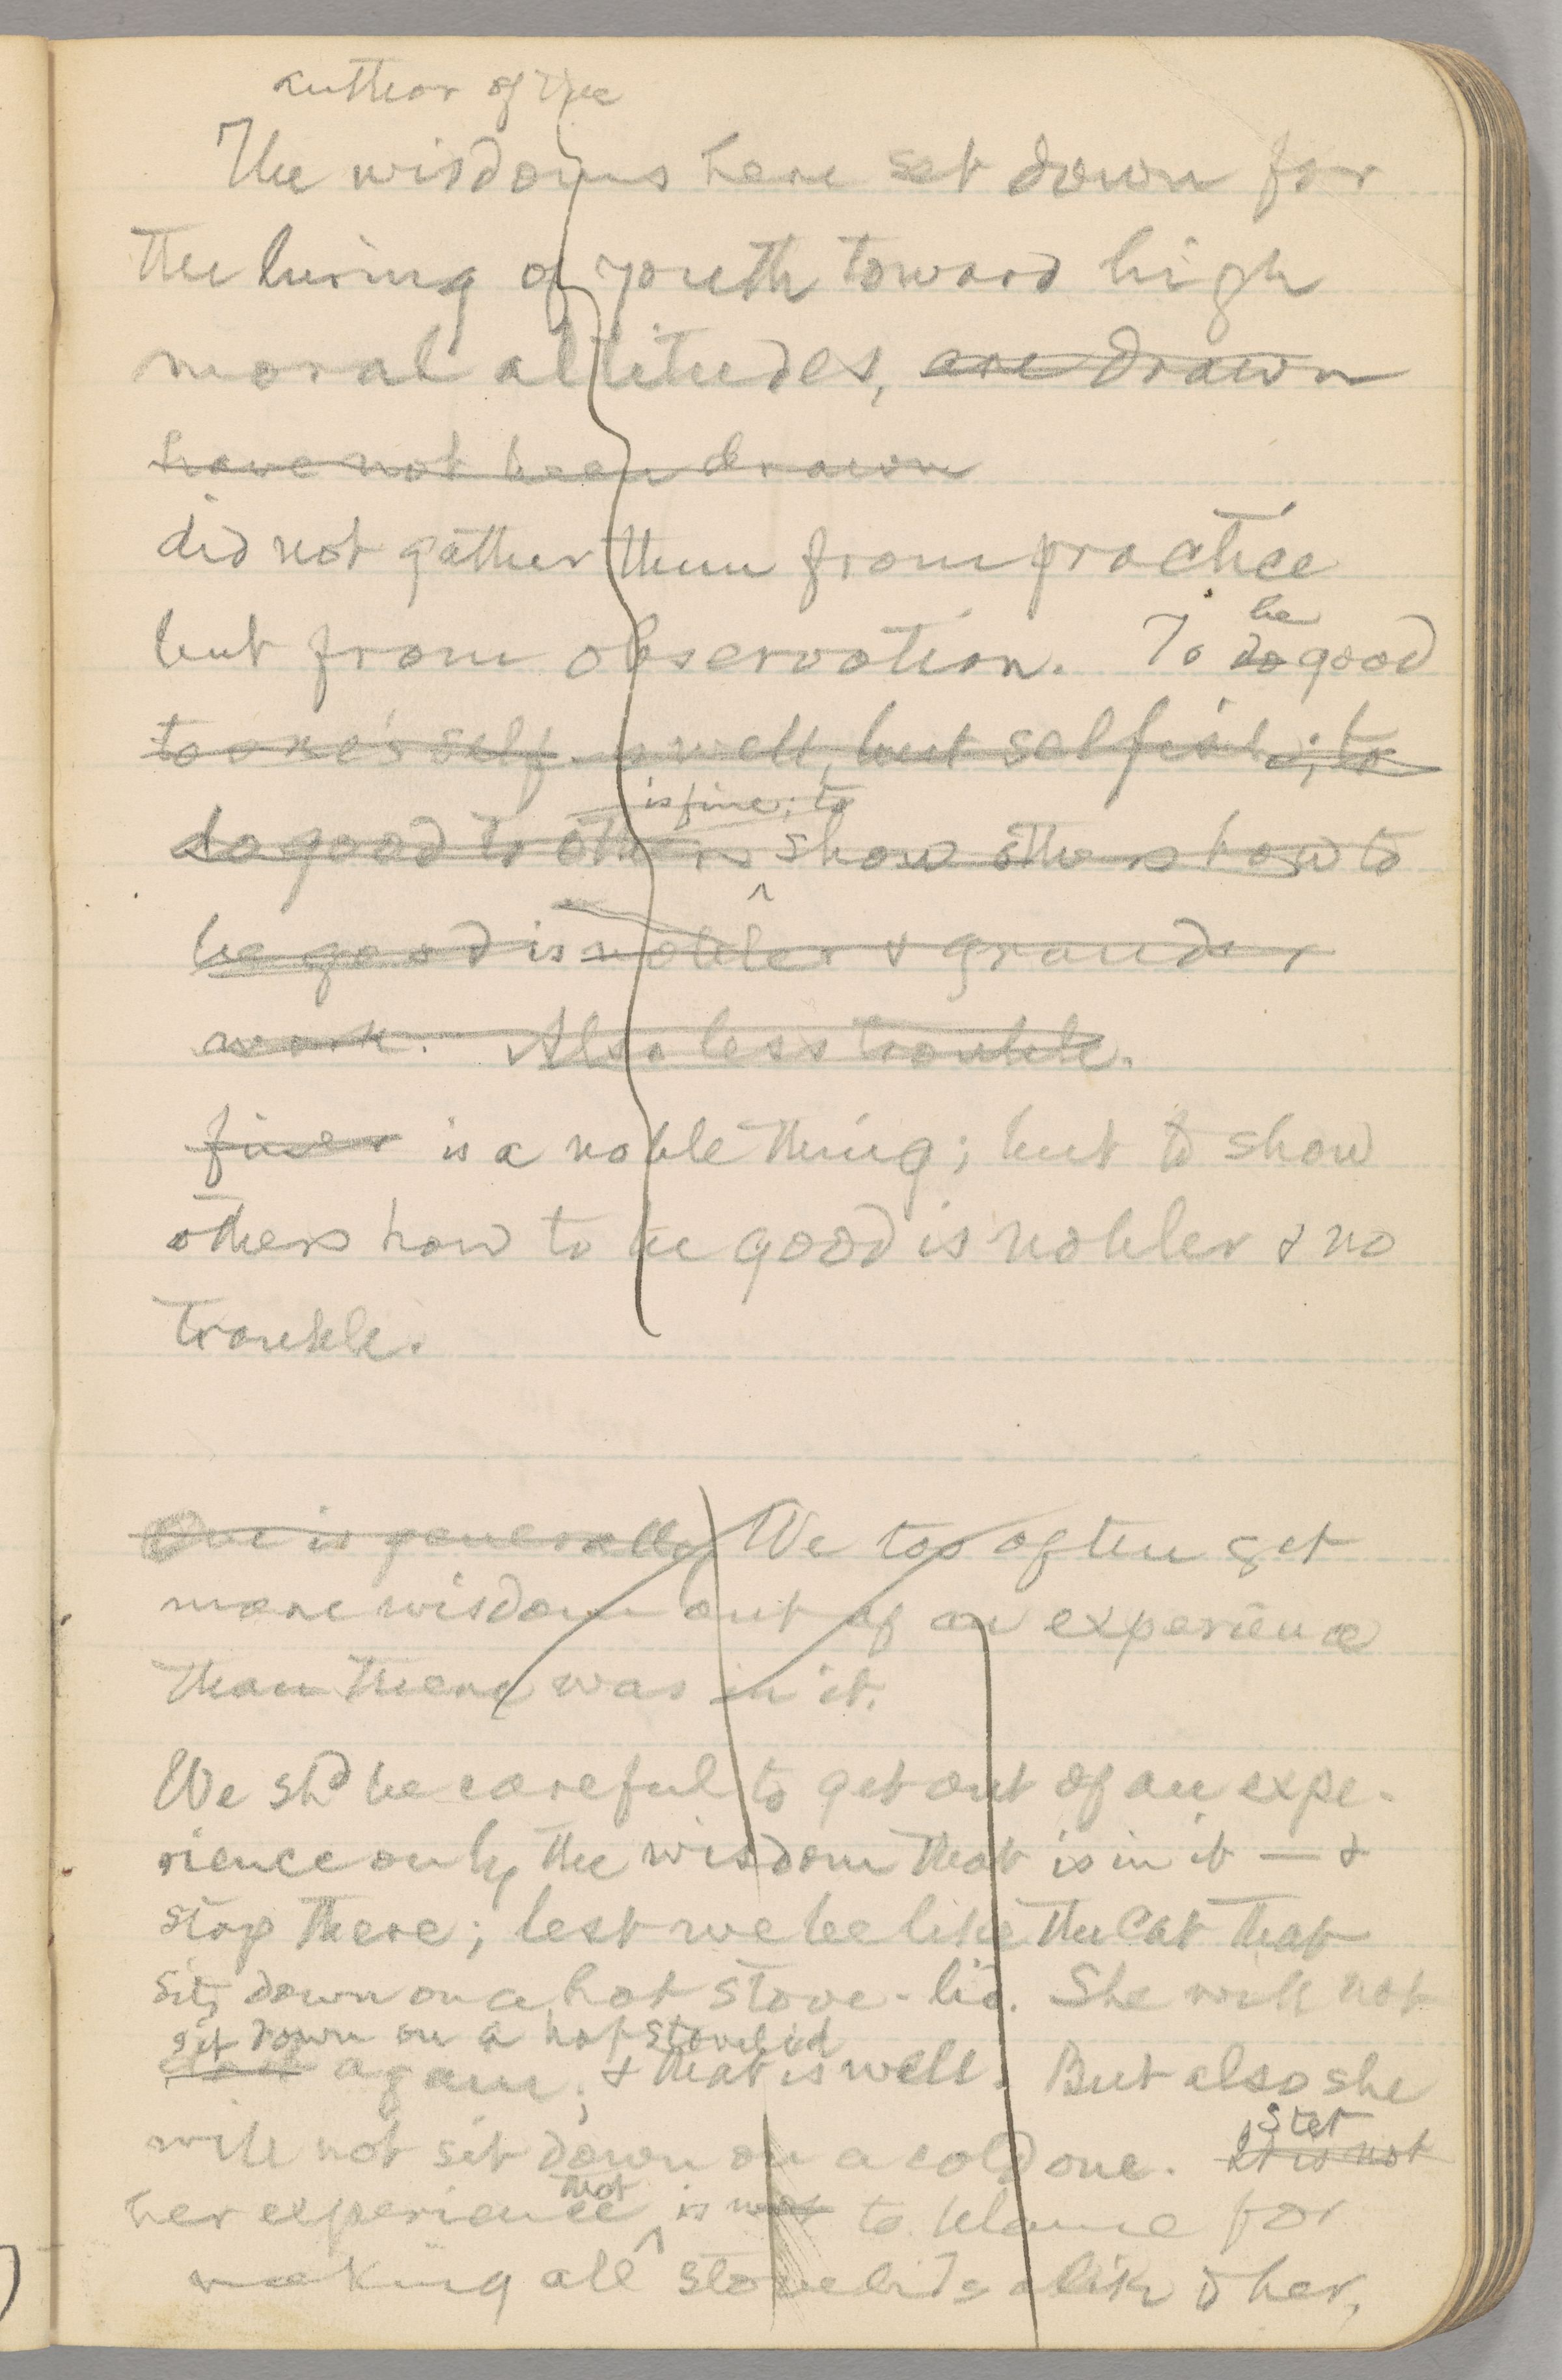 author of the
The wisdoms here set down for
the luring of youth toward high
moral altitudes, are drawn
have not been drawn
did not gather them from practice
but from observation. To do good
be
to one's self is well, but selfish; to
is fine; to
do good to others show others how to
be good is nobler & grander
work. Also less trouble.
finer is a noble thing; but to show
others how to be good is nobler & no
trouble.
One is generally We too often get
more wisdom out of an experience
than there was in it.
We shd be careful to get out of an expe-
rience only the wisdom that is in it — &
stop there; lest we be like the cat that
sits down on a hot stove-lid. She will not
sit down on a hot stove lid
again; & that is well. But also she
stet
will not sit down on a cold one. It is not
not
her experience is to blame for
making all stove lids alike to her,